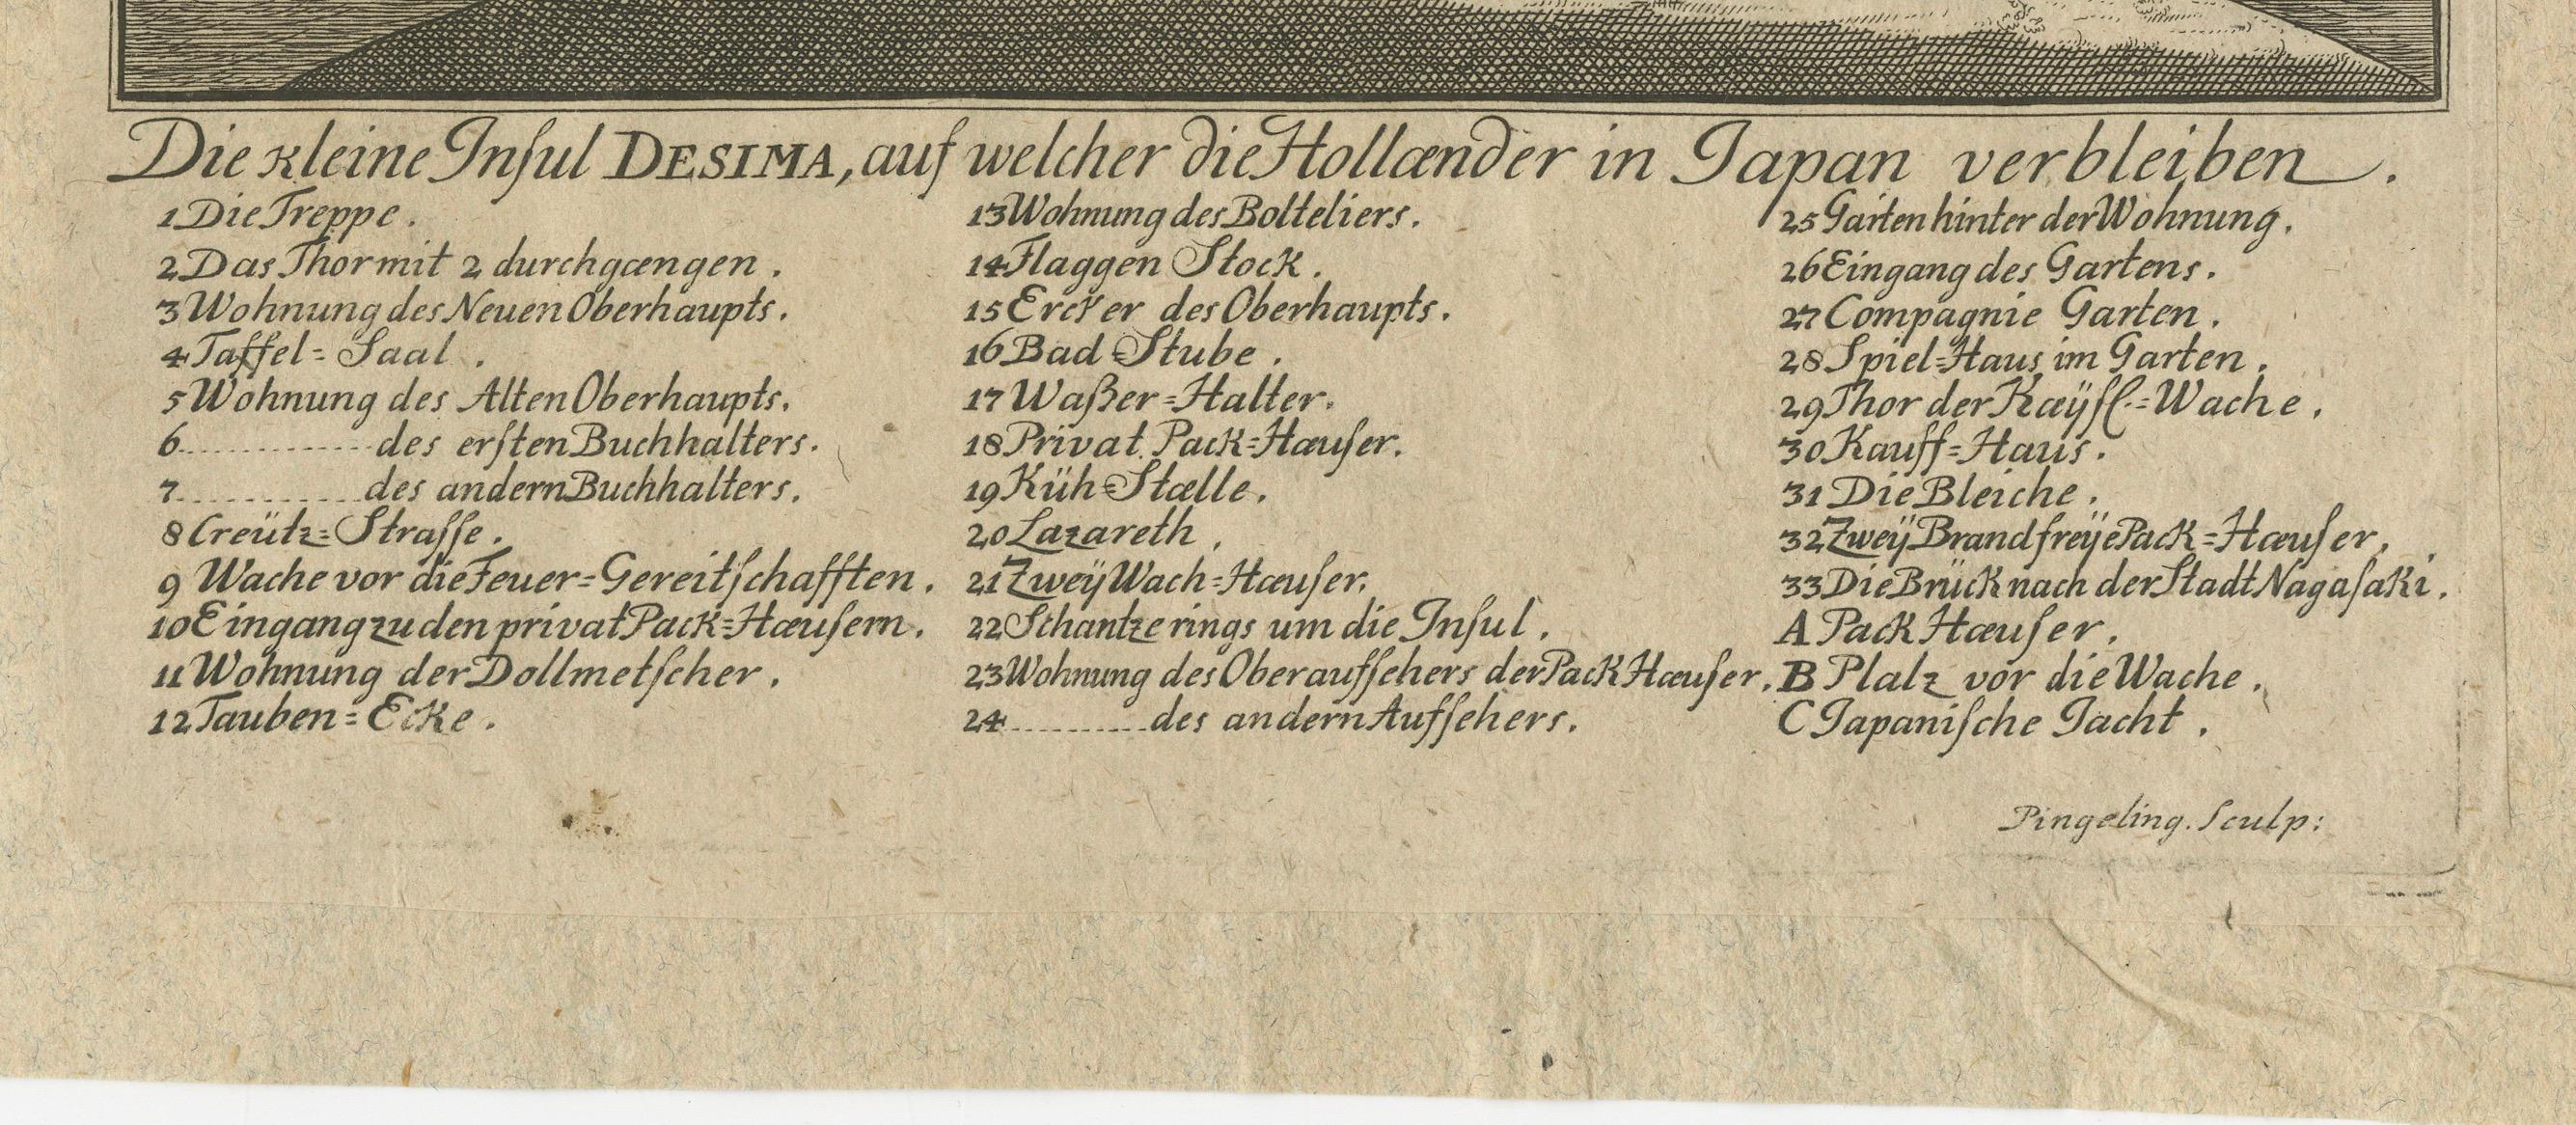 Die kleine Inſul DESIMA, auf welcher die Hollænder in Japan verbleiben.
1 Die Treppe.
2 Das Thor mit 2 durchgængen.
3 Wohnung des Neuen Oberhaupts.
4 Taffel=Saal.
5 Wohnung des Alten Oberhaupts.
6............des erſten Buchhalters.
7............des andern Buchhalters.
8 Creütz=Straſſe.
9 Wache vor die Feuer=Gereitſchafften.
10 Eingang zu den privat Pack=Hæuſern.
11 Wohnung der Dollmetſcher.
12 Tauben=Ecke.
13 Wohnung des Bolteliers.
14 Flaggen Stock.
15 Ercker des Oberhaupts.
16 Bad=Stube.
17 Waßer=Halter.
18 Privat Pack=Hæuſer.
19 Küh=Stælle.
20 Lazareth.
21 Zweÿ Wach=Hæuſer.
22 Schantze rings um die Inſul.
23 Wohnung des Oberaufſehers der Pack Hæuſer.
24..........des andern Aufſehers.
25 Garten hinter der Wohnung.
26 Eingang des Gartens.
27 Compagnie Garten.
28 Spiel=Haus im Garten.
29 Thor der Kæÿſl.=Wache.
30 Kauff=Haus.
31 Die Bleiche.
32 Zweÿ Brandfreÿe Pack=Hæuſer.
33 Die Brück nach der Stadt Nagaſaki.
A Pack Hæuſer.
B Platz vor die Wache.
C Japaniſche Jacht.
Pingeling. Sculp: